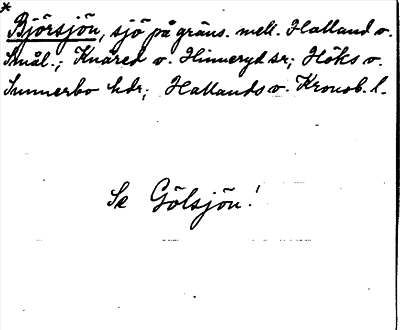 *
Björsjön, sjö på gräns. mell. Halland o.
Smål.; Knäred o. Hinneryd sr; Höks o.
Sunnerbo hdr; Hallands o. Kronob. l.
Se Gölsjön!